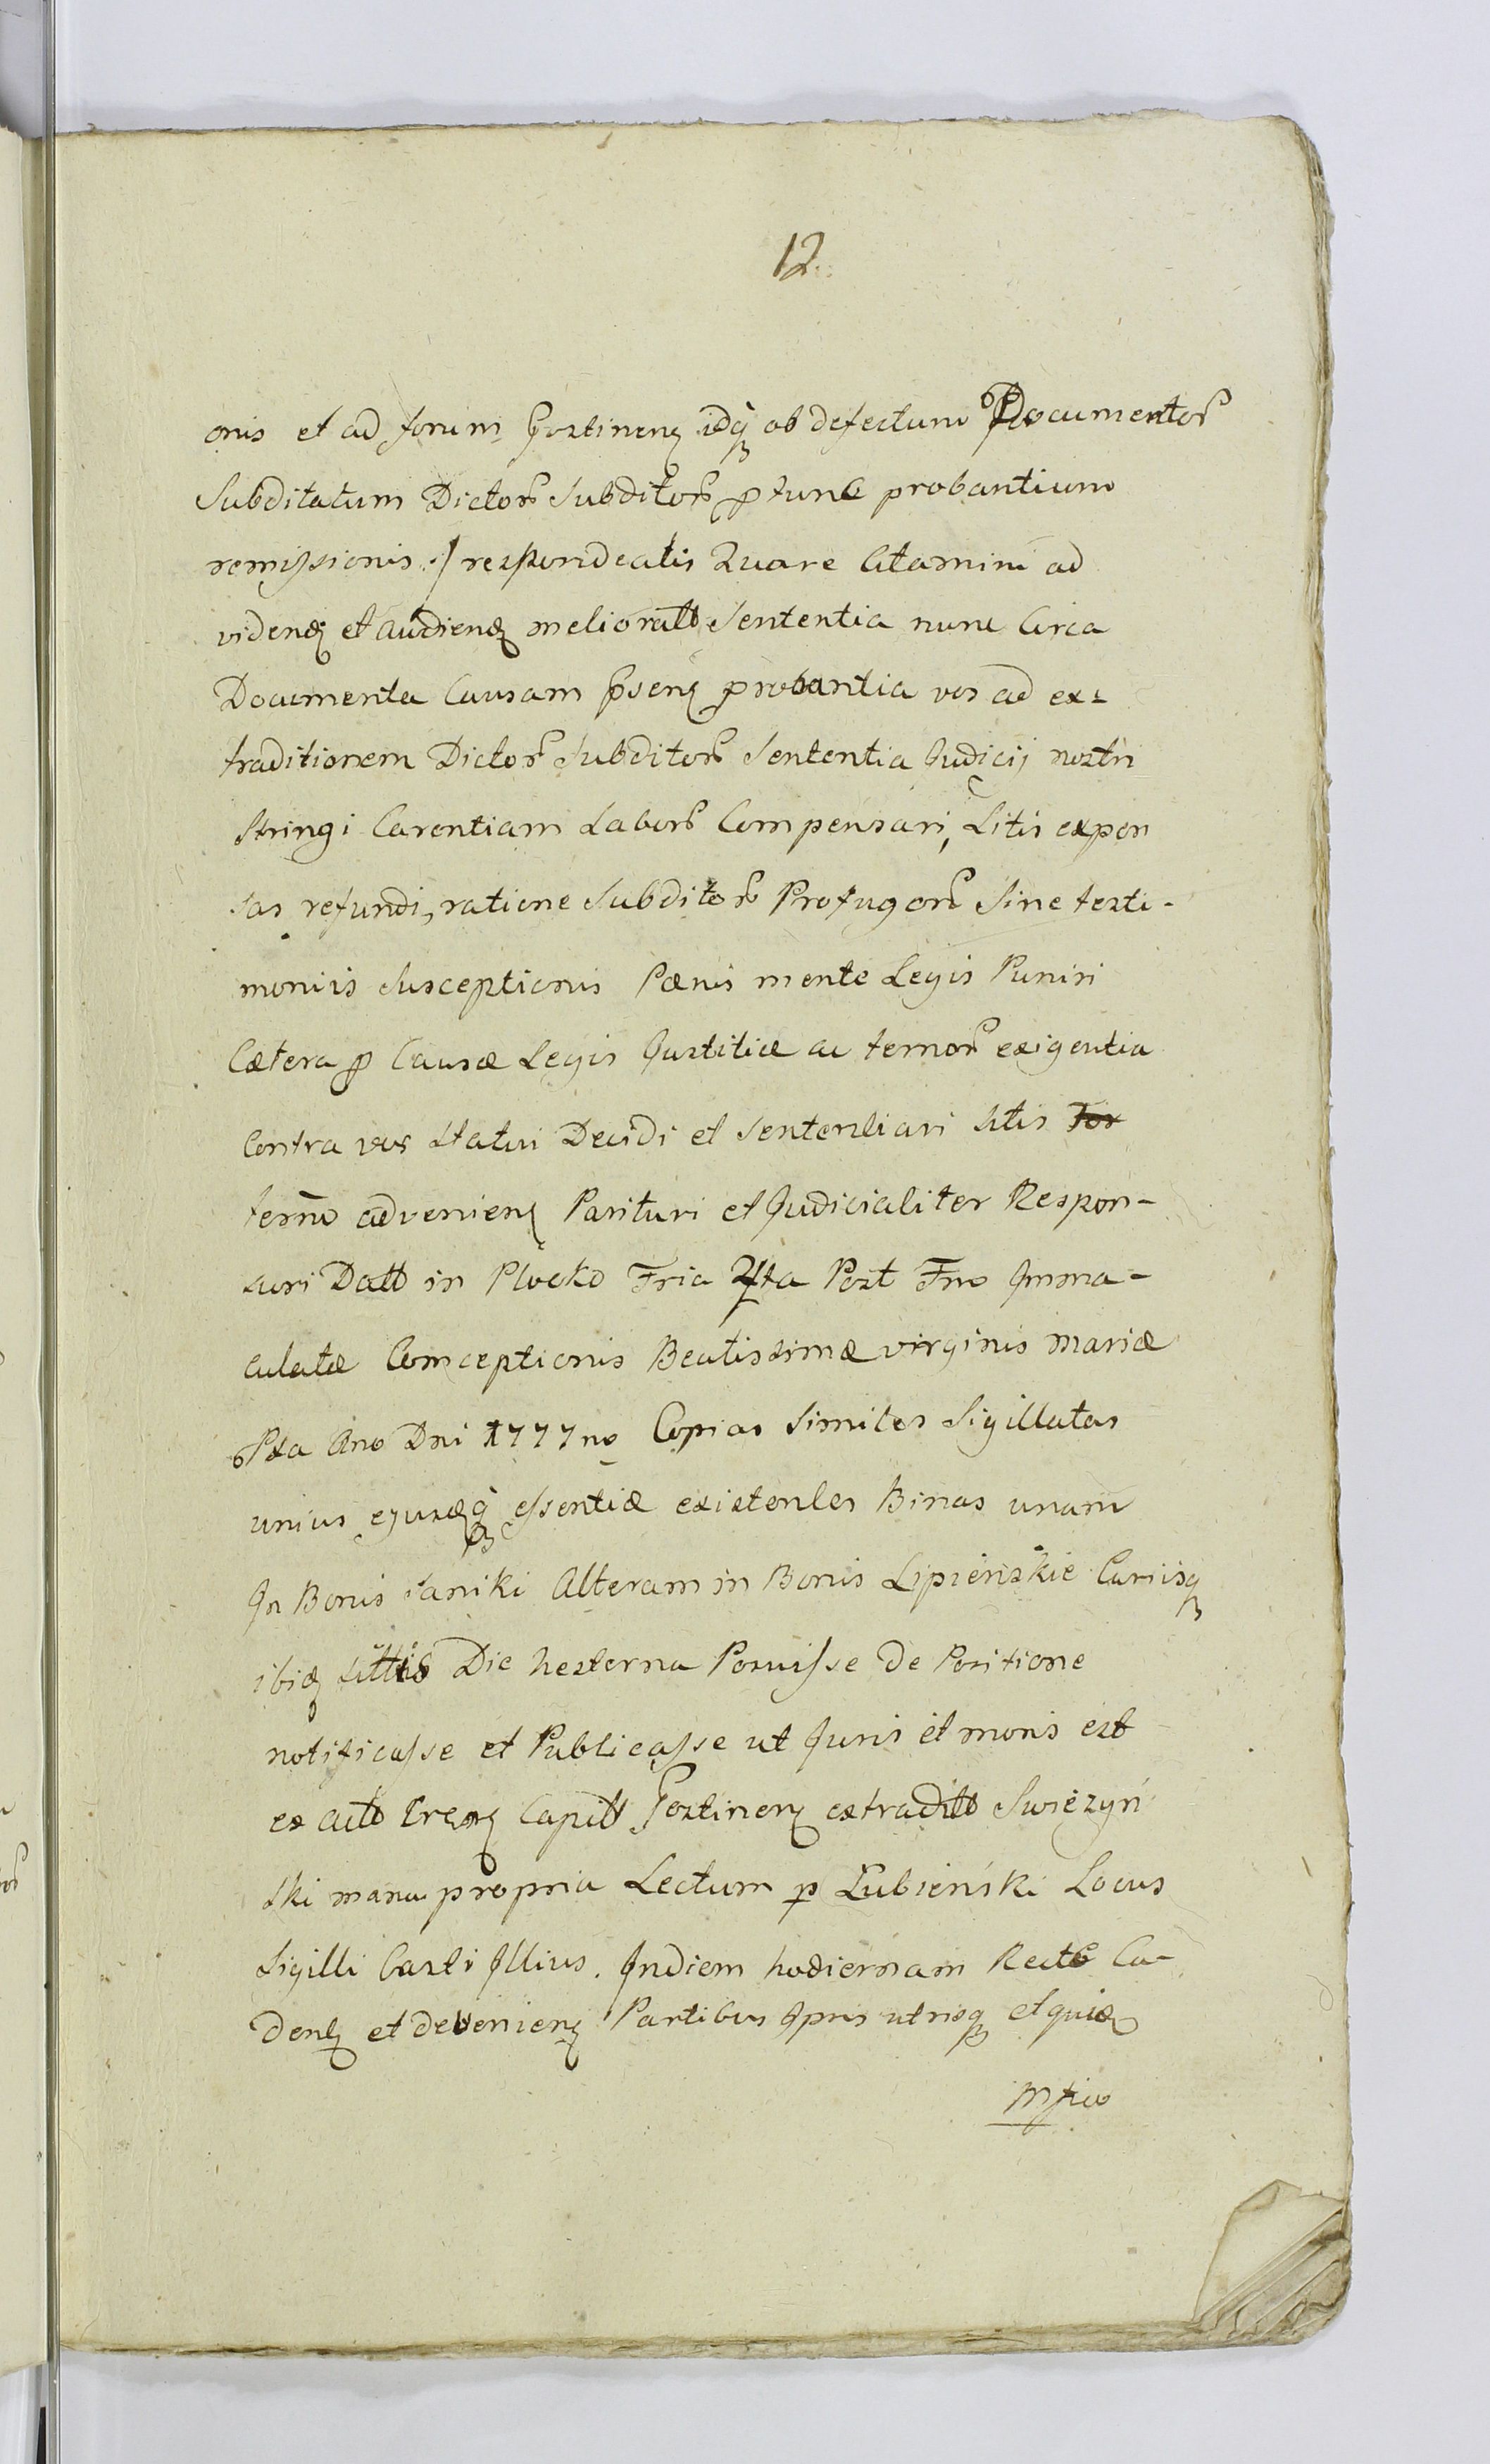 12.
onis et ad forum Gostinen idq ob defectum Documentor
Subditatum Dictor Subditor p tunc probantium
remissionis :/ respondeatis Quare Citamini ad
videnḍ et audienḍ meliorato Sententia nunc Circa
Documenta Causam psenẓ probantia vos ad ex-
traditionem Dictor Subditor Sententia Judicij nostri
Stringi Carentiam Labor Compensari, Litis expen
sas refundi, ratione Subditor Profugor Sine testi-
moniis Susceptionis Pænis mente Legis Puniri
Cætera p Causæ Legis Justitiæ ac termor exigentia
Contra vos Statui Decidi et Sententiari Sitis
termo advenienẓ Parituri et Judicialiter Respon-
suri Datt in Plocko Fria 4ta Post Fm Imma-
culatæ Comceptionis Beatissimæ virginis Mariæ
Pxa Ano Dni 1777no Copias Similes Sigillatas
unius ejusdeq essentiæ existentes Binas unam
In Bonis Saniki Alteram in Bonis Lipieńskie Curiisq
ibiḍ sittis Die hesterna Posuisse De Positione
notificasse et Publicasse ut Juris et moris est
ex actto Capitt Gostinenẓ extraditt Swięzyń
ski manu propria Lectum p Łubieński Locus
Sigilli Casti Illius. Indiem hodiernam Recte Ca-
denẓ et devenienẓ Partibus Ipsis utrisq et quiḍ